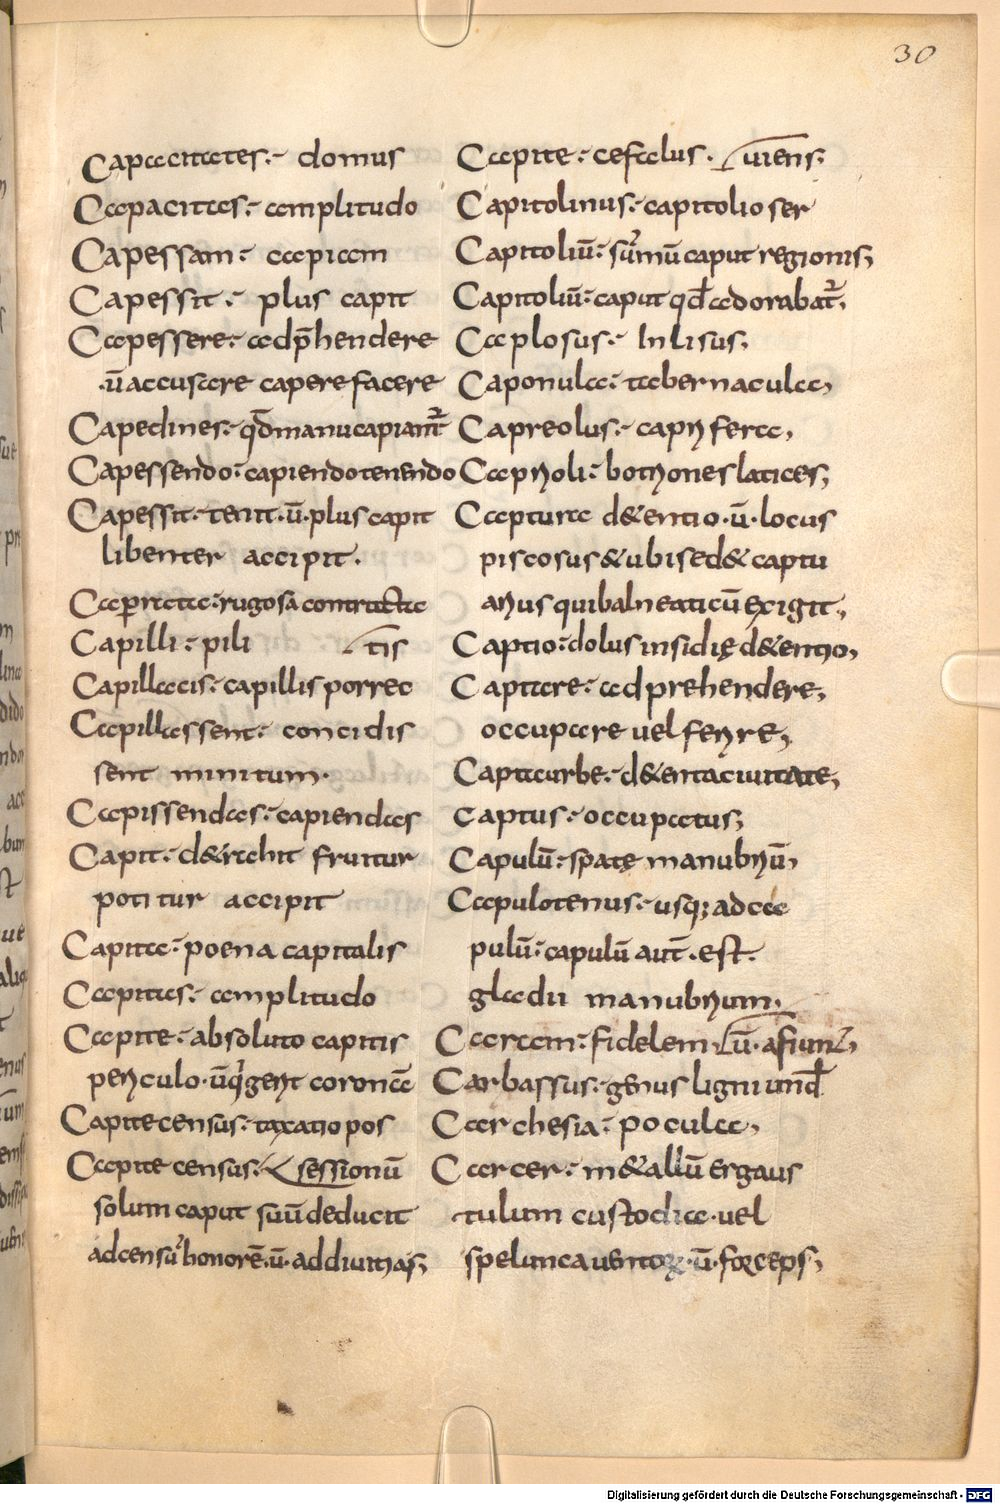 30
Capacitates:- domus
Capacitas:- amplitudo
Capessam:- capiam
Capessit:- plus capit
Capessere:- adp̄hendere
.ū accusare capere facere
Capedines:- qđ manu capiant᷑
Capessendo:- capiendo tenendo
Capessit:- tenit .ū. plus capit
libenter accipit.
rugosā contracta
Capilli:- pili tis
Capillacis:- capillis porrec
Capillassent:- concidis
sent minitum.
Capissendas:- capiendas
Capit:- fruitur
potitur accipit
Capita:- poena capitalis
Capitas:- amplitudo
Capite:- absoluto capitis
periculo .ū coronā
Capite census:- taxatio pos
Capite census:- sessionū
solum caput suū deducit
ad censū honorē .ū. ad divitias;
Capite:- cefalus. viens;
Capitolinus:- capitolio ser
Capitoliū:- sūmū caput regionis;
Capitoliū:- caput qđ adorabat᷑;
Caplosus:- Inlisus;
Caponula:- tabernacula;
Capreolus:- capri fera;
Caprioli:- botriones latices;
Captura d&entio .ū. locus
piscosus & ubi sed& captu
arius qui balneaticū exigit;
Captio:- dolus insidię d&entio;
Captare:- adprehendere;
occupare vel ferire;
Capta urbe:- d&enta civitate;
Captus:- occupatus;
Capulū:- spatę manubriū;
Capulo tenus:- usq; ad ca
pulū:- capulū aut̄ . est.
gladii manubrium.
Cararm:- fidelem ū.
Carbassus:- genus ligni und
Carchesia:- pocula;
Carcer:- m&allū ergaus
tulum custodia. vel
spelunca ventoꝝ .ū. forceps;
Digitalisierung gefördert durch die Deutsche Forschungsgemeinschaft - DFG